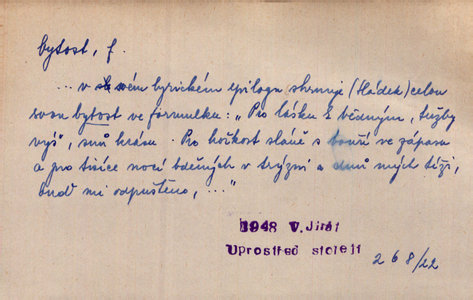 bytost, f.
... v svém lyrickém epilogu shrnuje (Hádek) celou
svou bytost ve formulku: „Pro lásku k bědným, tužby
výš, snů krásu. Pro hořkost slané s bouří ve zápasu
a pro tisíce nocí bdečných v trýzni a dnů mých tíži,
buď mi odpuštěno, ..."
1948 V. Jirát
Uprostřed století
268/22